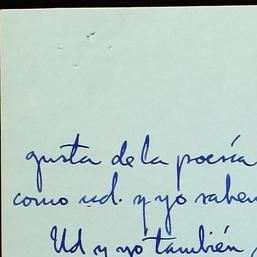 gusta de la poesía
como ud. y yo saben
Ud y yo también